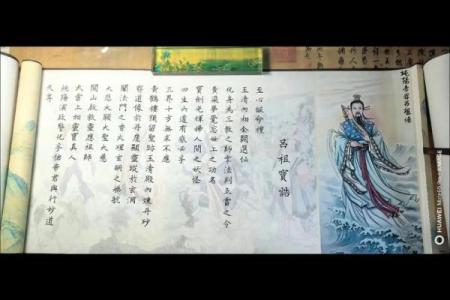 呂祖寶誥
至心皈命禮
玉清內相金闕選仙
化身為三教之師掌法判五雷之令
黃粱夢覺忘世上之功名
寶劍光輝掃人間之妖怪
四生六道有感必孚
三界十方無求不應
黃鶴樓頭留聖跡玉清殿內煉丹砂
像於丹崖顯靈蹤於玄洞
闡法門之香火玄嗣之梯航
大悲大願大聖大慈
開山啟教靈應祖師
天雷上相靈寶真人
純陽演政警化孚佑帝君興行妙道
天尊
HUAWEI